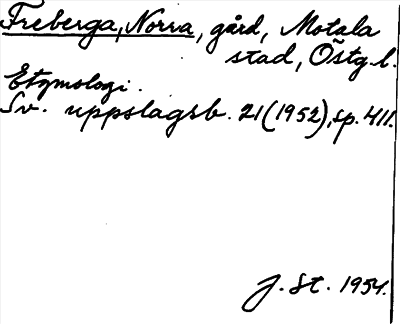 Freberga, Norra, gård, Motala
stad, Östg.l.
Etymologi.
Sv. uppslagsb. 21(1952), sp. 411.
J. St. 1954.